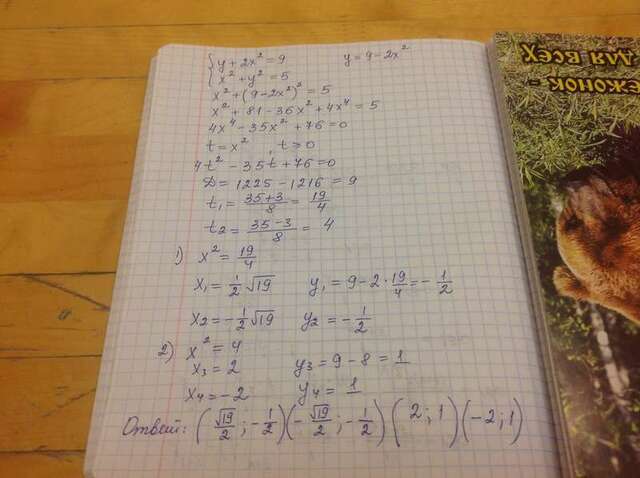 { y + 2x² = 9    y = 9 - 2x²
{ x² + y² = 5
x² + (9 - 2x²)² = 5
x² + 81 - 36x² + 4x⁴ = 5
4x⁴ - 35x² + 76 = 0
t = x², t ≥ 0
4t² - 35t + 76 = 0
D = 1225 - 1216 = 9
t₁ = (35+3)/8 = 19/4
t₂ = (35-3)/8 = 4
1) x² = 19/4
x₁ = 1/2 √19    y₁ = 9 - 2 · 19/4 = - 1/2
x₂ = - 1/2 √19    y₂ = - 1/2
2) x² = 4
x₃ = 2    y₃ = 9 - 8 = 1
x₄ = -2    y₄ = 1
Ответ: (√19/2 ; - 1/2) (- √19/2 ; - 1/2) (2 ; 1) (-2 ; 1)
ЕЖОНОК -
ДЛЯ ВСЕХ